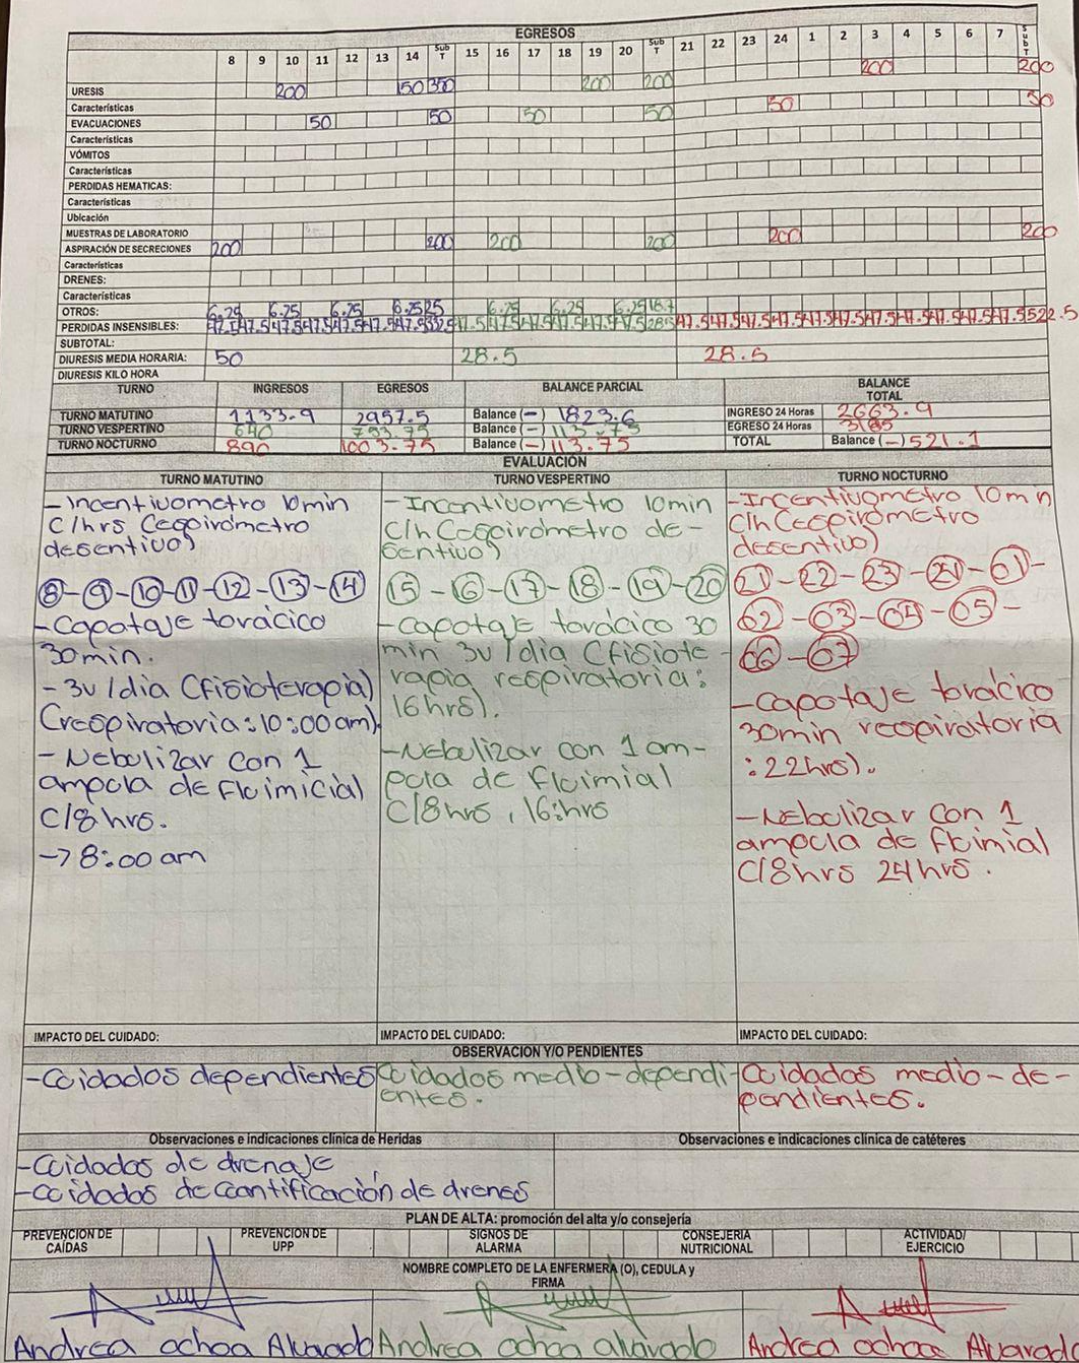 EGRESOS
8 9 10 11 12 13 14 Sub T 15 16 17 18 19 20 Sub T 21 22 23 24 1 2 3 4 5 6 7 Sub T
URESIS 200 150 350 200 200 200 200
Características
EVACUACIONES 50 50 50 50 50 50
Características
VÓMITOS
Características
PERDIDAS HEMATICAS:
Características
Ubicación
MUESTRAS DE LABORATORIO
ASPIRACIÓN DE SECRECIONES 200 200 200 200 200 200
Características
DRENES:
Características
OTROS: 6.25 6.25 6.25 6.25 25 6.25 6.25 6.25 18.7
PERDIDAS INSENSIBLES: 47.5 47.5 47.5 47.5 47.5 47.5 47.5 332.5 47.5 47.5 47.5 47.5 47.5 47.5 285 47.5 47.5 47.5 47.5 47.5 47.5 47.5 47.5 47.5 47.5 47.5 522.5
SUBTOTAL:
DIURESIS MEDIA HORARIA: 50 28.5 28.5
DIURESIS KILO HORA
TURNO INGRESOS EGRESOS BALANCE PARCIAL BALANCE TOTAL
TURNO MATUTINO 1133.9 2957.5 Balance (-) 1823.6 INGRESO 24 Horas 2663.9
TURNO VESPERTINO 640 753.75 Balance (-) 113.75 EGRESO 24 Horas 3185
TURNO NOCTURNO 890 1003.75 Balance (-) 113.75 TOTAL Balance (-) 521.1
EVALUACIÓN
TURNO MATUTINO
- Incentivometro 10min
C/hrs Cespirómetro
desentivo)
8-9-10-11-12-13-14
- Capotaje torácico
30min.
- 3v/dia (fisioterapia)
(respiratoria:10:00am).
- Nebulizar con 1
ampola de fluimicial
C/8hrs.
→ 8:00am
TURNO VESPERTINO
- Incentivometro 10min
C/h Cespirometro de-
sentivo)
15-16-17-18-19-20
- Capotaje torácico 30
min 3v/dia (fisiote-
rapia respiratoria:
16hrs).
- Nebulizar con 1 am-
pola de fluimial
C/8hrs, 16:hrs
TURNO NOCTURNO
- Incentivometro 10min
C/h Cespirómetro
desentivo)
21-22-23-24-01-
02-03-04-05-
06-07
- Capotaje torácico
30min respiratoria
:22hrs).
- Nebulizar con 1
ampola de fluimial
C/8hrs 24hrs.
IMPACTO DEL CUIDADO: IMPACTO DEL CUIDADO: IMPACTO DEL CUIDADO:
OBSERVACION Y/O PENDIENTES
- Cuidados dependientes
Cuidados medio-dependi-
entes.
Cuidados medio-de-
pendientes.
Observaciones e indicaciones clínica de Heridas
- Cuidados de drenaje
- cuidados de cuantificación de drenes
Observaciones e indicaciones clínica de catéteres
PLAN DE ALTA: promoción del alta y/o consejería
PREVENCION DE CAÍDAS PREVENCION DE UPP SIGNOS DE ALARMA CONSEJERÍA NUTRICIONAL ACTIVIDAD/ EJERCICIO
NOMBRE COMPLETO DE LA ENFERMERA (O), CEDULA y
FIRMA
Andrea ochoa Alvarado Andrea ochoa alvarado Andrea ochoa Alvarado